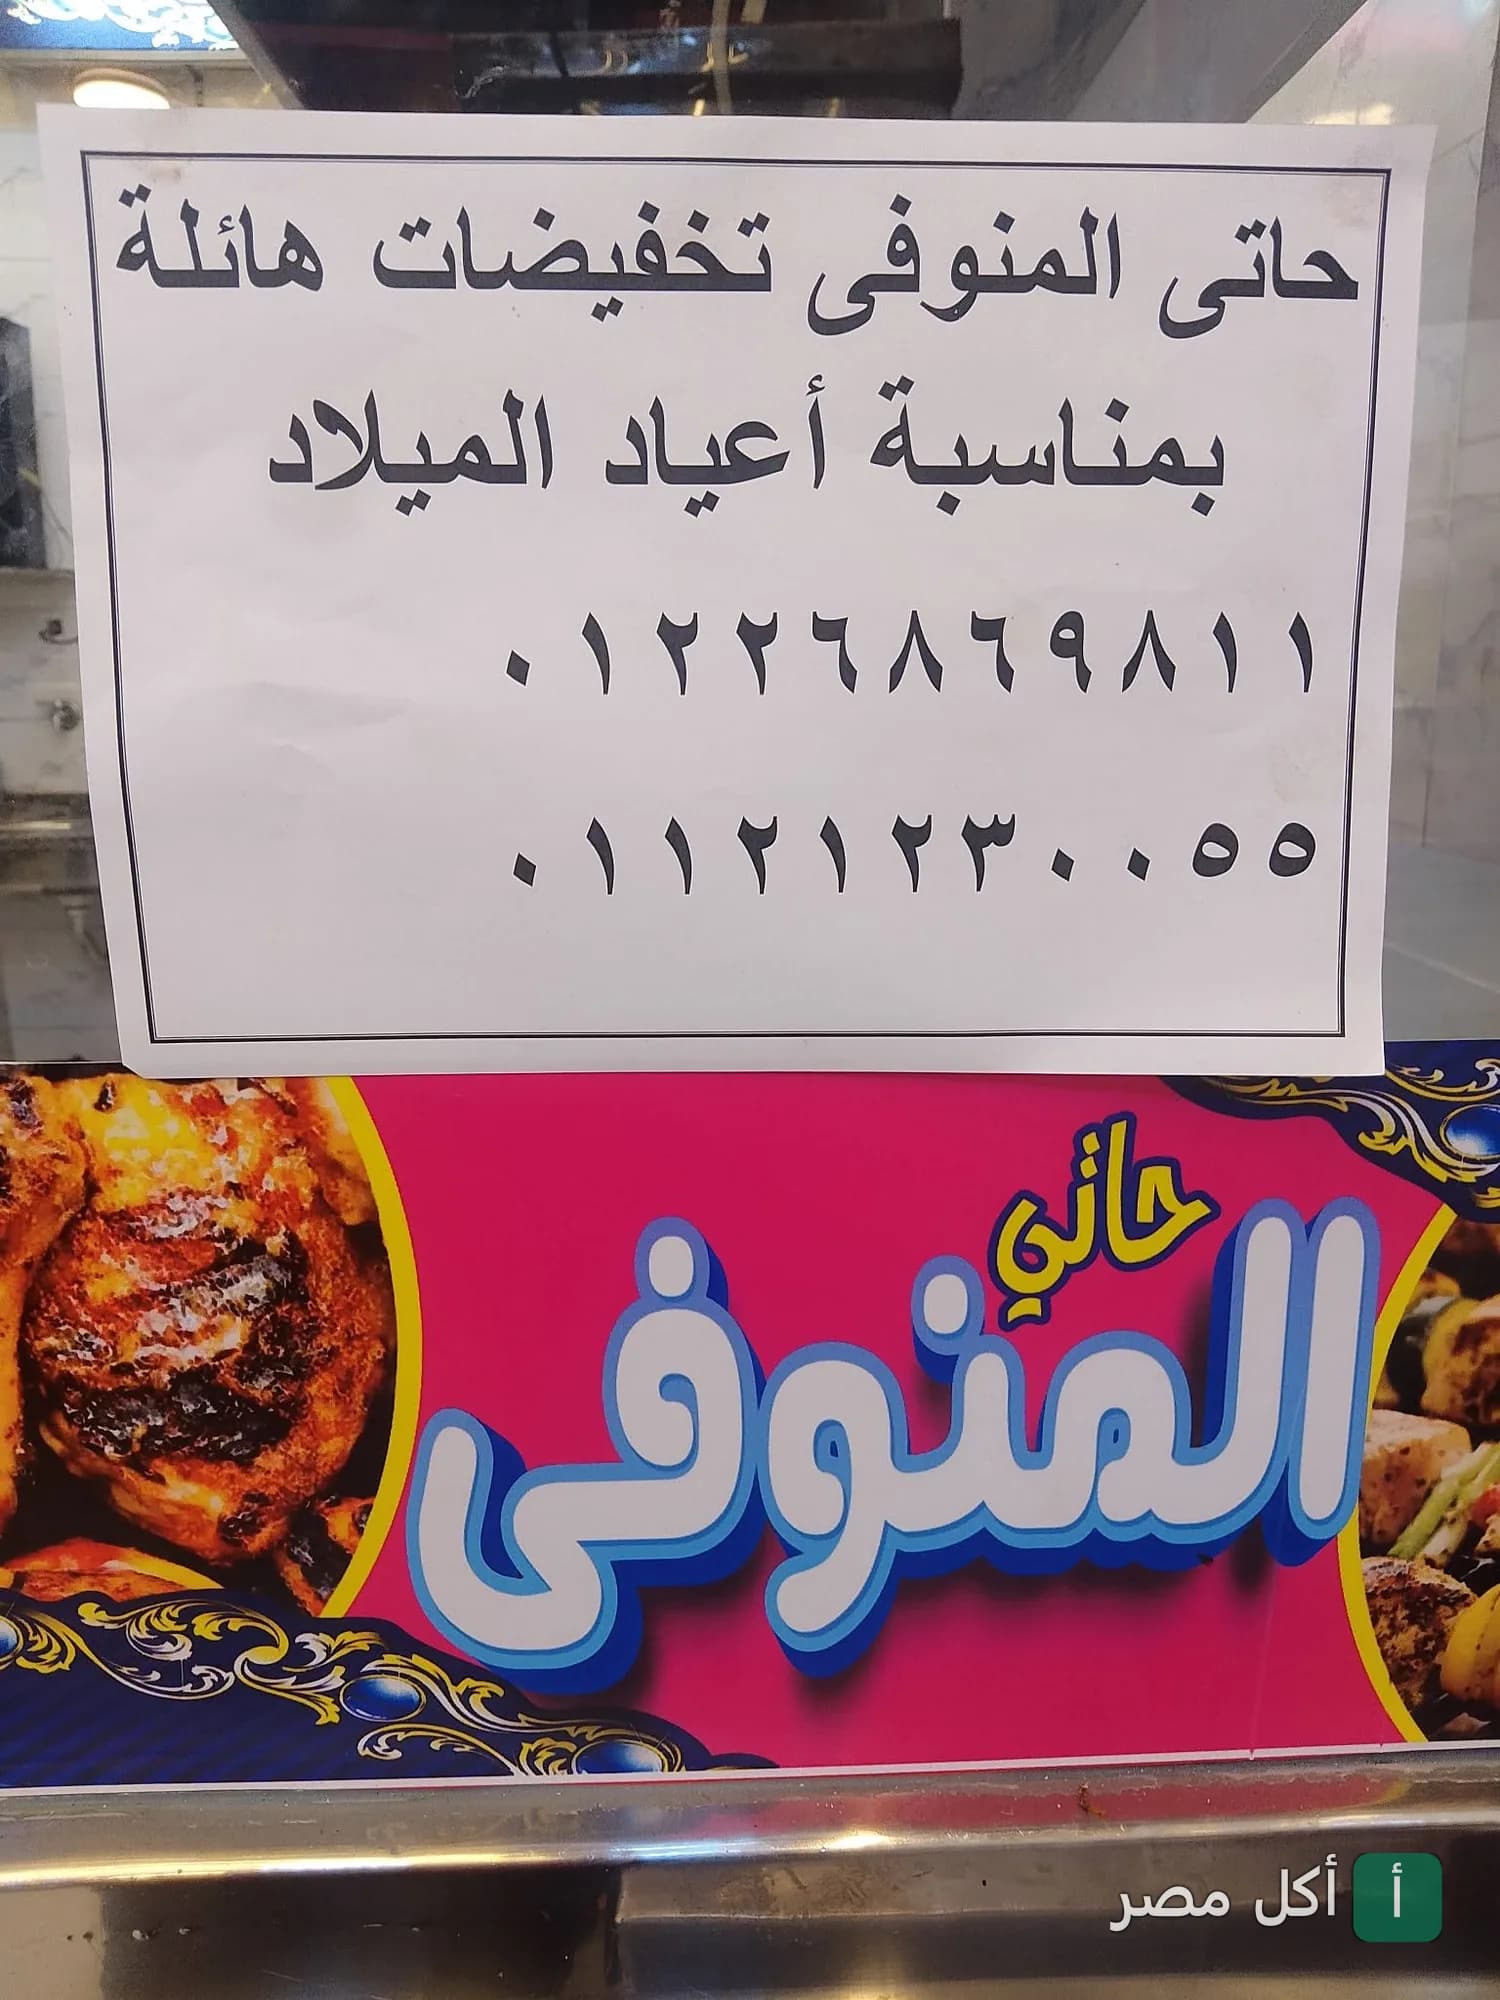 حاتى المنوفى تخفيضات هائلة
بمناسبة أعياد الميلاد
٠١٢٢٦٨٦٩٨١١
٠١١٢١٢٣٠٠٥٥
حاتي
المنوفى
أ أكل مصر